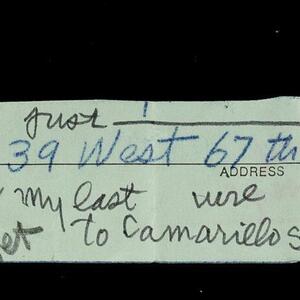 just
39 West 67th
ADDRESS
My last wire
to Camarillo S